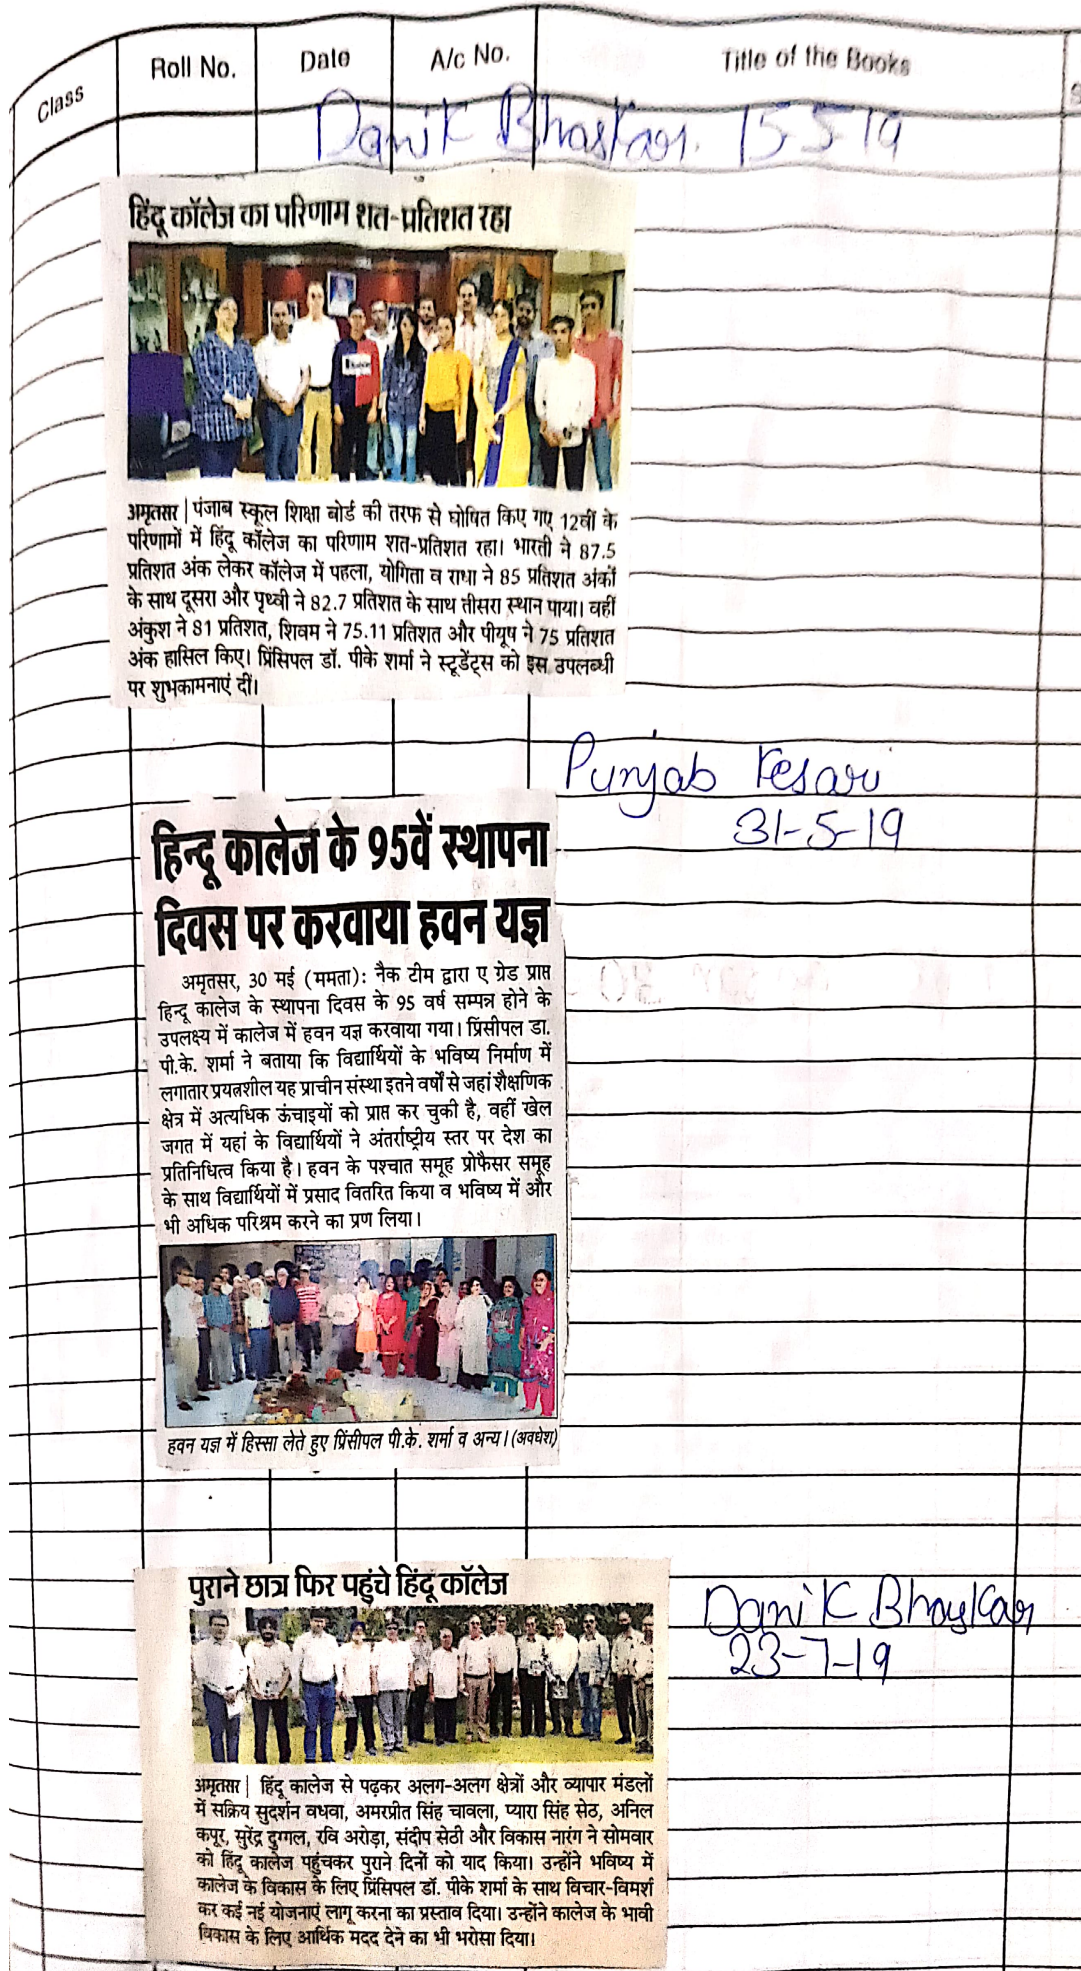 Class Roll No. Date A/c No. Title of the Books
Danik Bhaskar. 15-5-19
हिंदू कॉलेज का परिणाम शत-प्रतिशत रहा
अमृतसर | पंजाब स्कूल शिक्षा बोर्ड की तरफ से घोषित किए गए 12वीं के
परिणामों में हिंदू कॉलेज का परिणाम शत-प्रतिशत रहा। भारती ने 87.5
प्रतिशत अंक लेकर कॉलेज में पहला, योगिता व राधा ने 85 प्रतिशत अंकों
के साथ दूसरा और पृथ्वी ने 82.7 प्रतिशत के साथ तीसरा स्थान पाया। वहीं
अंकुश ने 81 प्रतिशत, शिवम ने 75.11 प्रतिशत और पीयूष ने 75 प्रतिशत
अंक हासिल किए। प्रिंसिपल डॉ. पीके शर्मा ने स्टूडेंट्स को इस उपलब्धी
पर शुभकामनाएं दीं।
Punjab Kesari
31-5-19
हिन्दू कालेज के 95वें स्थापना
दिवस पर करवाया हवन यज्ञ
अमृतसर, 30 मई (ममता): नैक टीम द्वारा ए ग्रेड प्राप्त
हिन्दू कालेज के स्थापना दिवस के 95 वर्ष सम्पन्न होने के
उपलक्ष्य में कालेज में हवन यज्ञ करवाया गया। प्रिंसीपल डा.
पी.के. शर्मा ने बताया कि विद्यार्थियों के भविष्य निर्माण में
लगातार प्रयत्नशील यह प्राचीन संस्था इतने वर्षों से जहां शैक्षणिक
क्षेत्र में अत्यधिक ऊंचाइयों को प्राप्त कर चुकी है, वहीं खेल
जगत में यहां के विद्यार्थियों ने अंतर्राष्ट्रीय स्तर पर देश का
प्रतिनिधित्व किया है। हवन के पश्चात समूह प्रोफैसर समूह
के साथ विद्यार्थियों में प्रसाद वितरित किया व भविष्य में और
भी अधिक परिश्रम करने का प्रण लिया।
हवन यज्ञ में हिस्सा लेते हुए प्रिंसीपल पी.के. शर्मा व अन्य। (अवधेश)
पुराने छात्र फिर पहुंचे हिंदू कॉलेज
Danik Bhaskar
23-7-19
अमृतसर | हिंदू कालेज से पढ़कर अलग-अलग क्षेत्रों और व्यापार मंडलों
में सक्रिय सुदर्शन वधवा, अमरप्रीत सिंह चावला, प्यारा सिंह सेठ, अनिल
कपूर, सुरेंद्र दुग्गल, रवि अरोड़ा, संदीप सेठी और विकास नारंग ने सोमवार
को हिंदू कालेज पहुंचकर पुराने दिनों को याद किया। उन्होंने भविष्य में
कालेज के विकास के लिए प्रिंसिपल डॉ. पीके शर्मा के साथ विचार-विमर्श
कर कई नई योजनाएं लागू करना का प्रस्ताव दिया। उन्होंने कालेज के भावी
विकास के लिए आर्थिक मदद देने का भी भरोसा दिया।